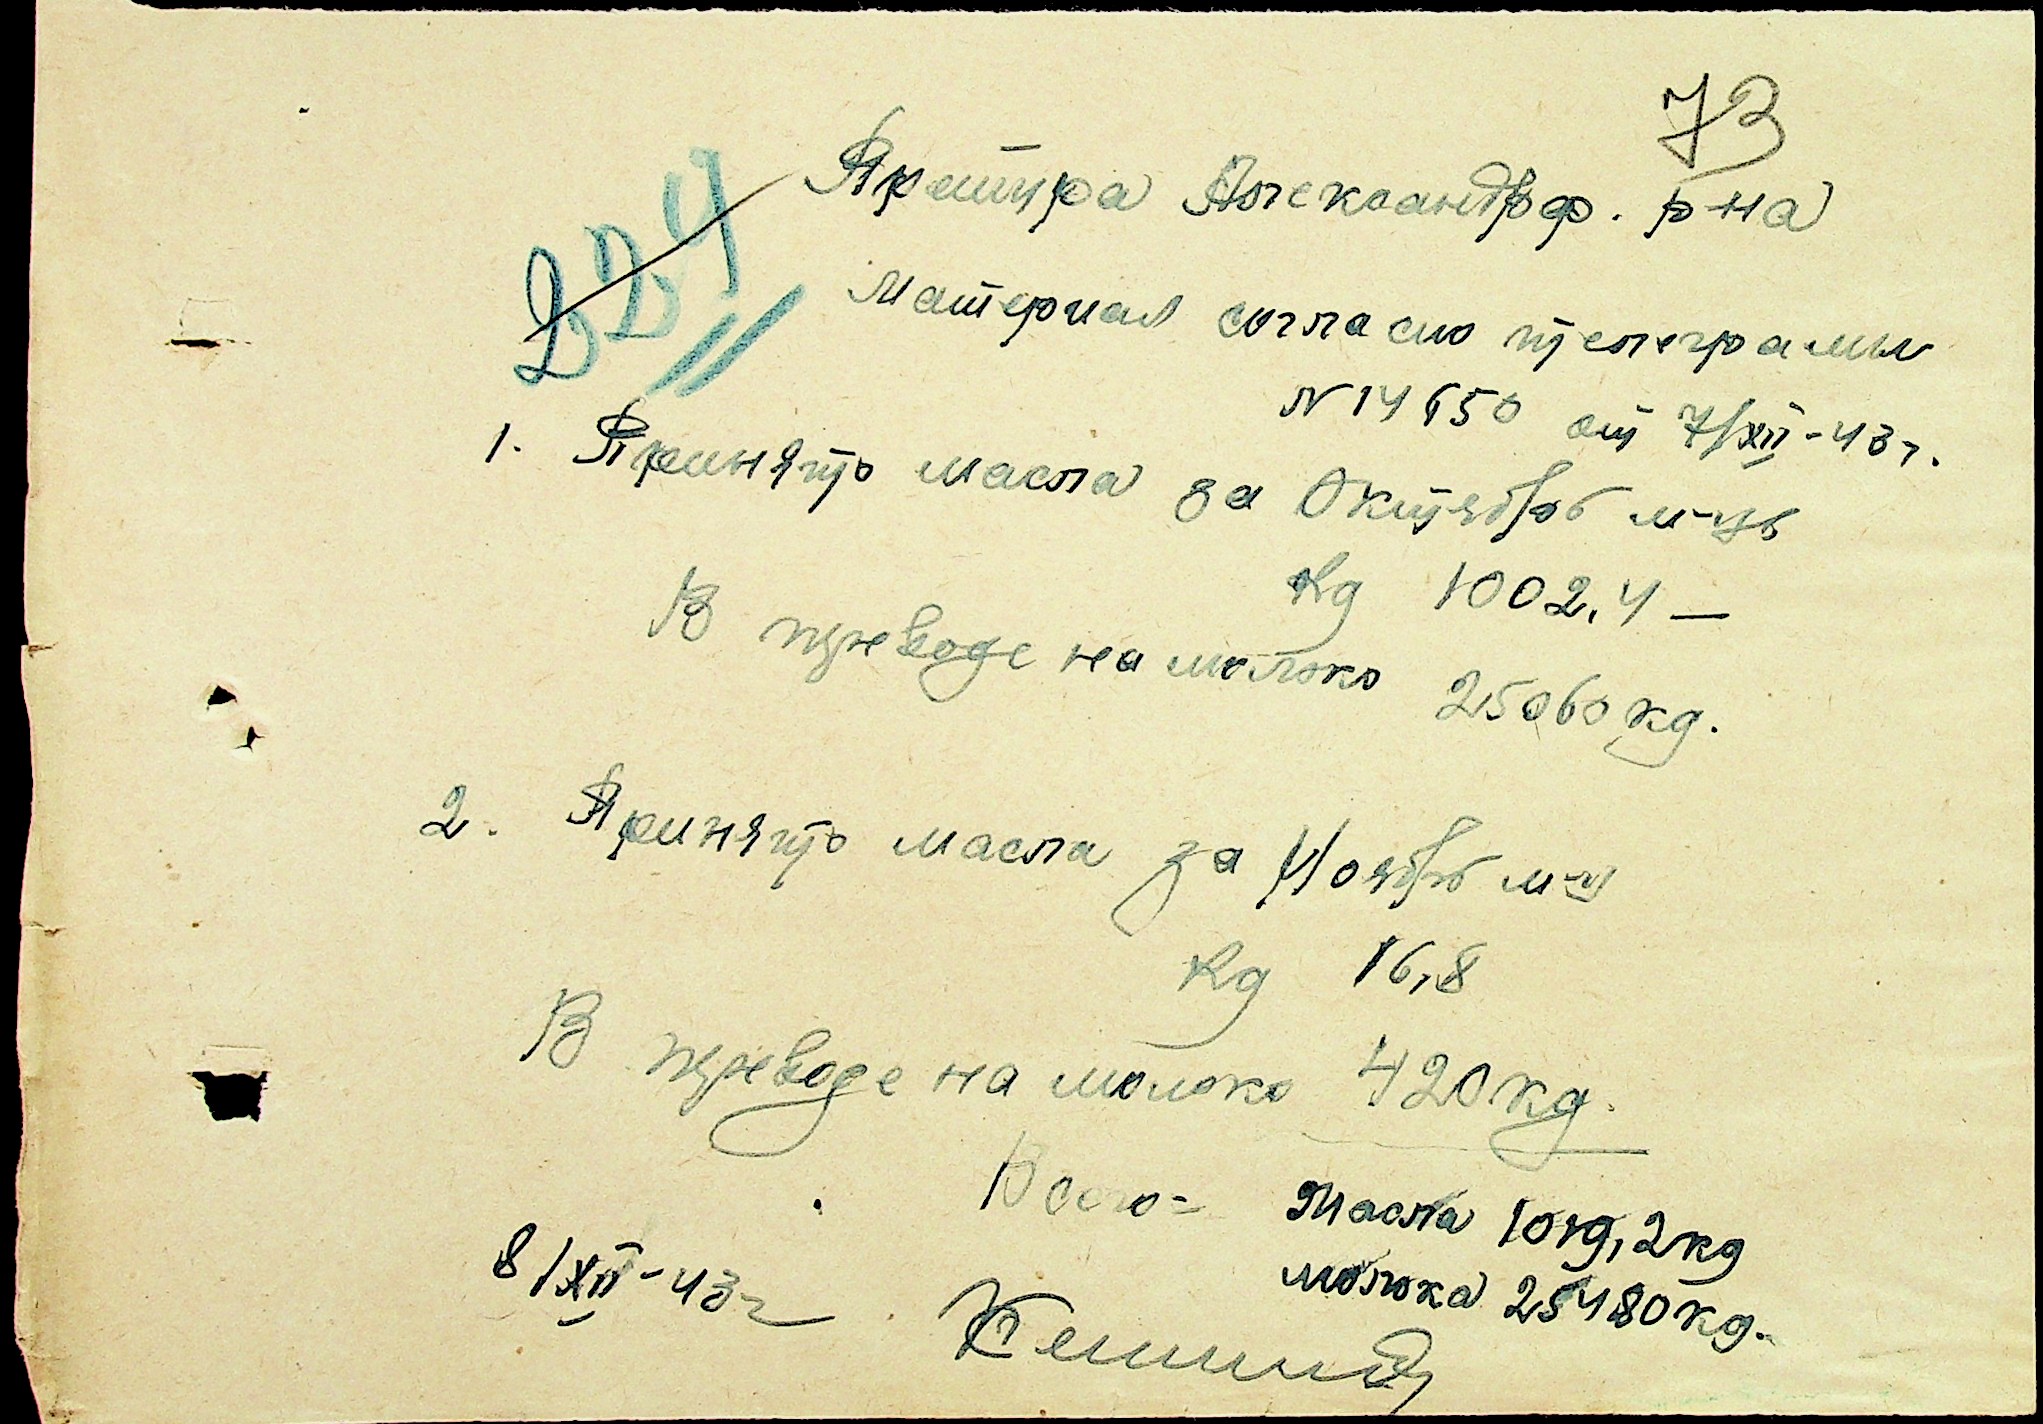 73
224
Претура Александроф. р-на
Материал согласно телеграмы
N 14650 от 7/XII-43 г.
1. Принято масла за Октябрь м-ць
кg 1002,4 —
В преводе на молоко 25060 кg.
2. Принято масла за Ноябрь м-ц
кg 16,8
В преводе на молоко 420 кg.
Всего = Масла 1019,2 кg
молока 25480 кg.
8/XII-43 г